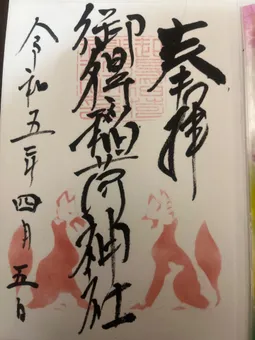 奉拝
御得稲荷神社
令和五年四月五日